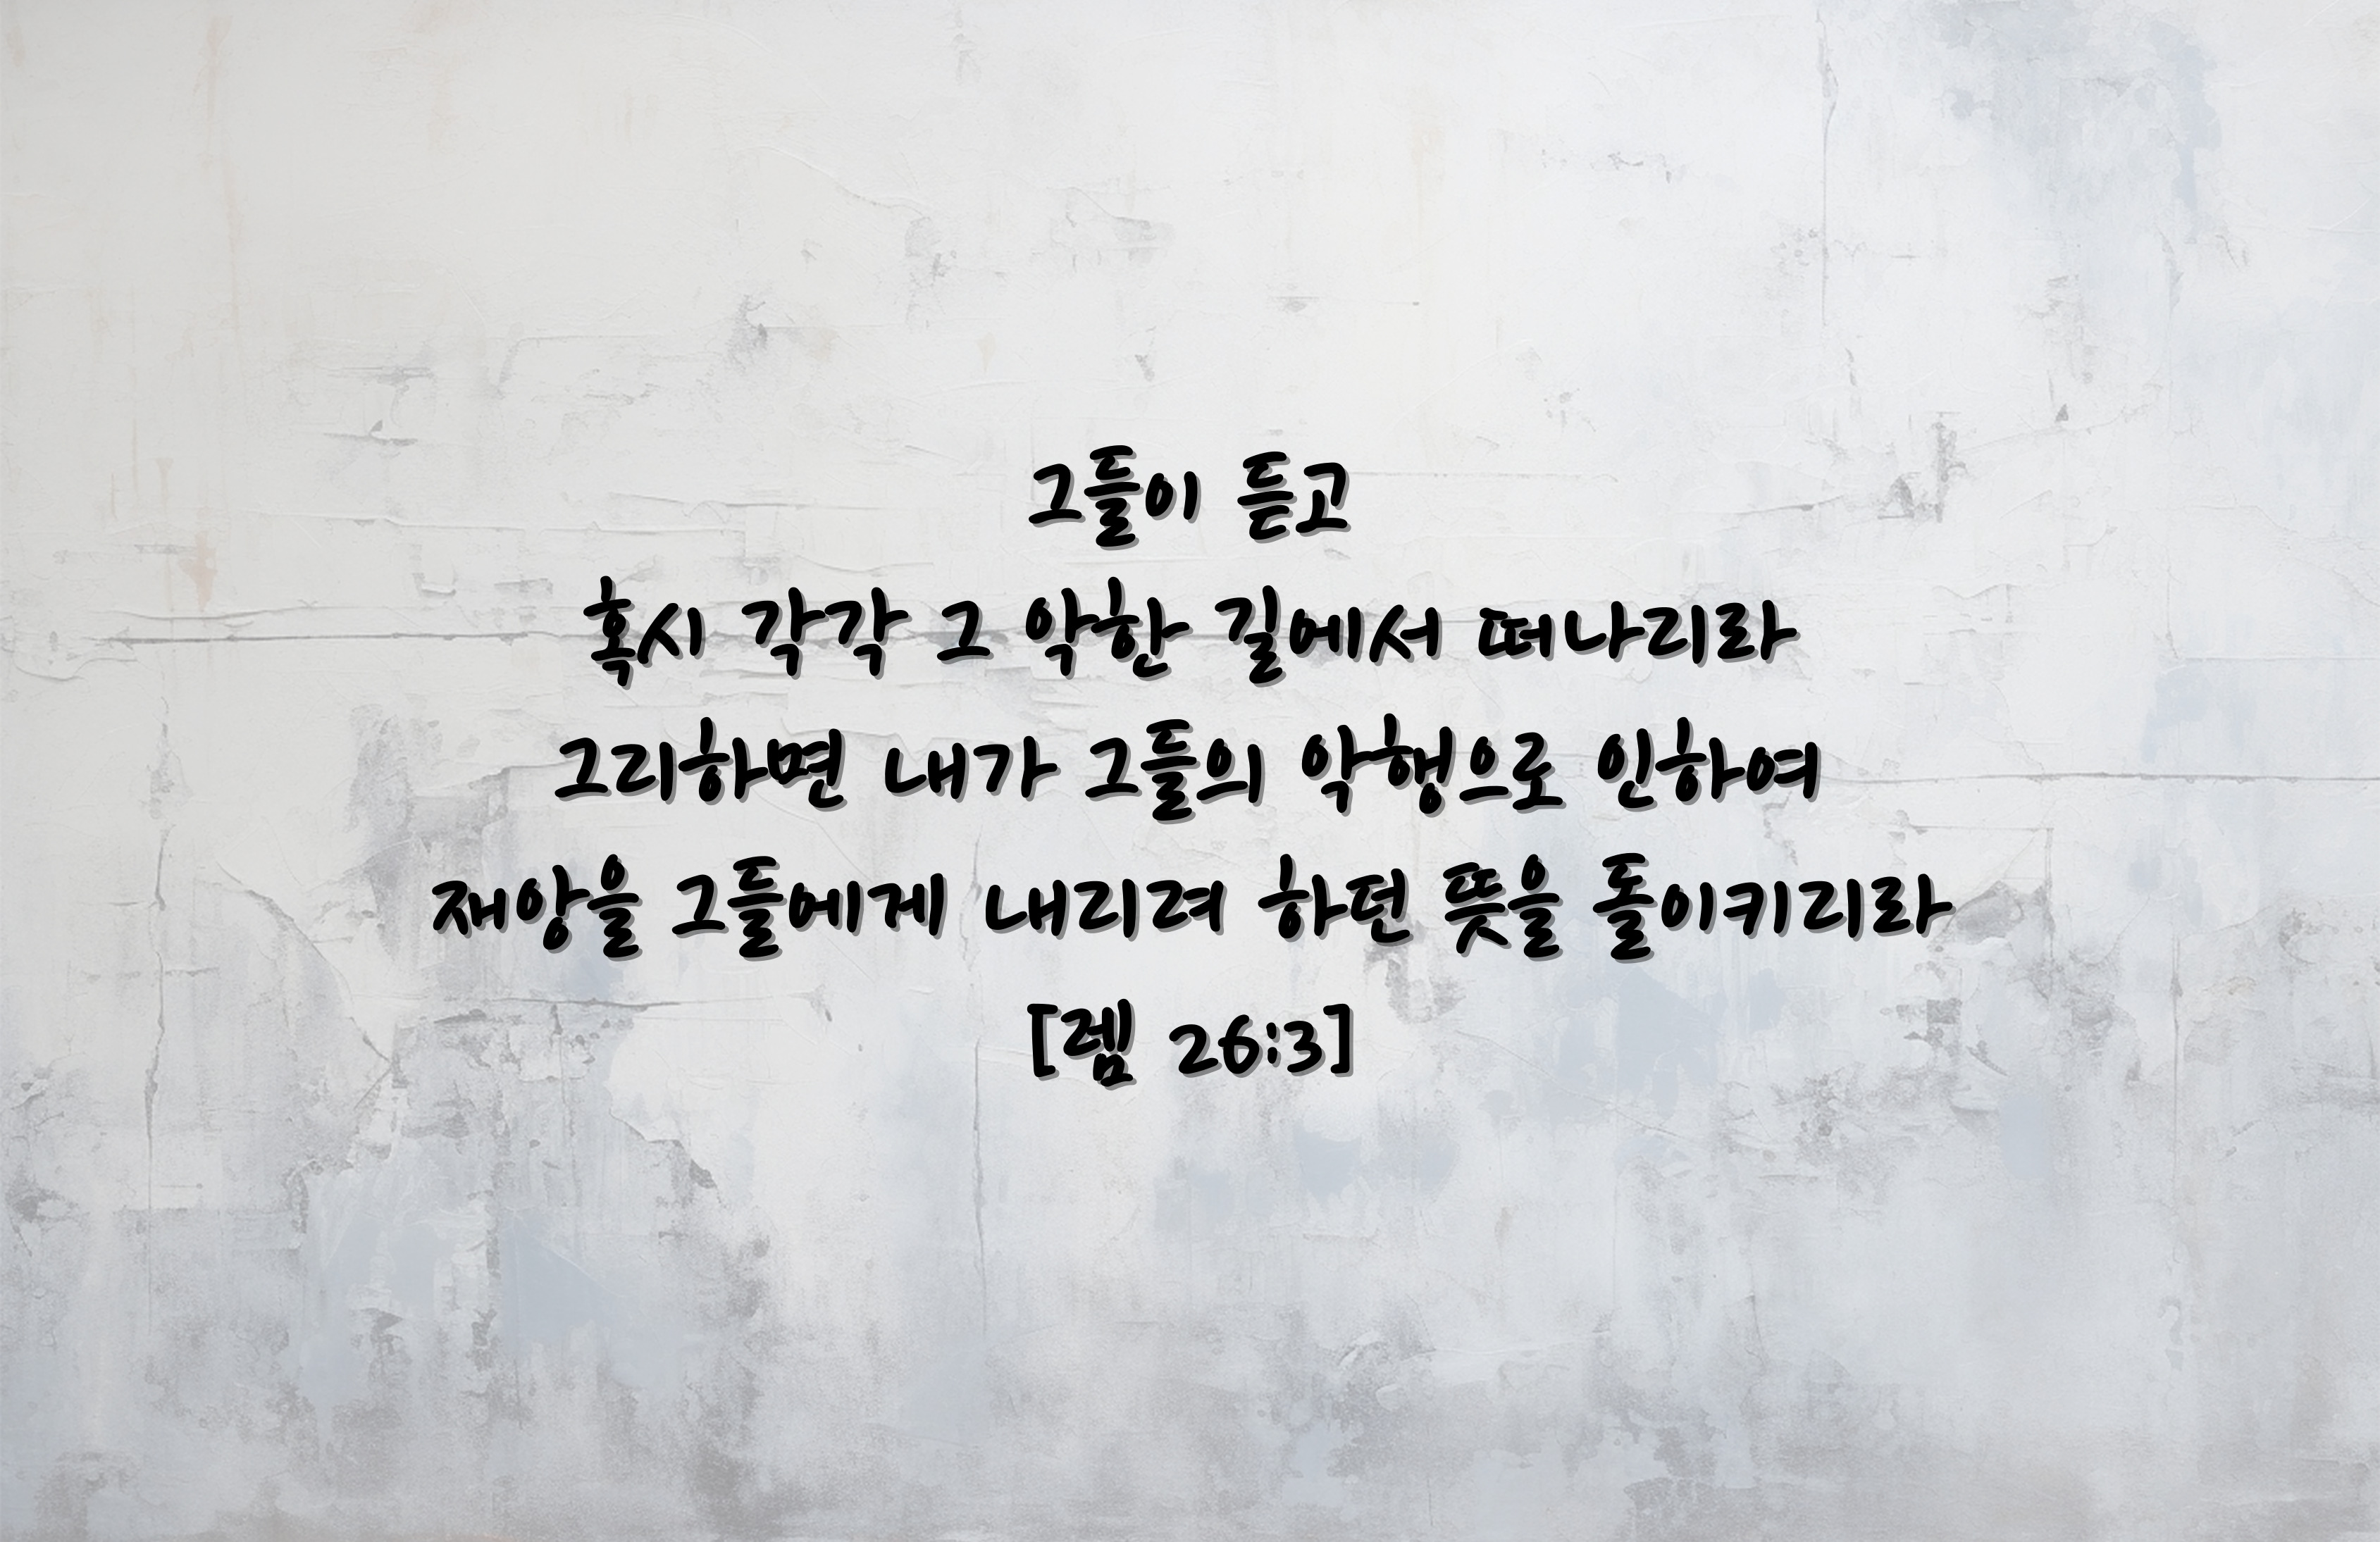 그들이 듣고
혹시 각각 그 악한 길에서 떠나리라
그리하면 내가 그들의 악행으로 인하여
재앙을 그들에게 내리려 하던 뜻을 돌이키리라
[렘 26:3]